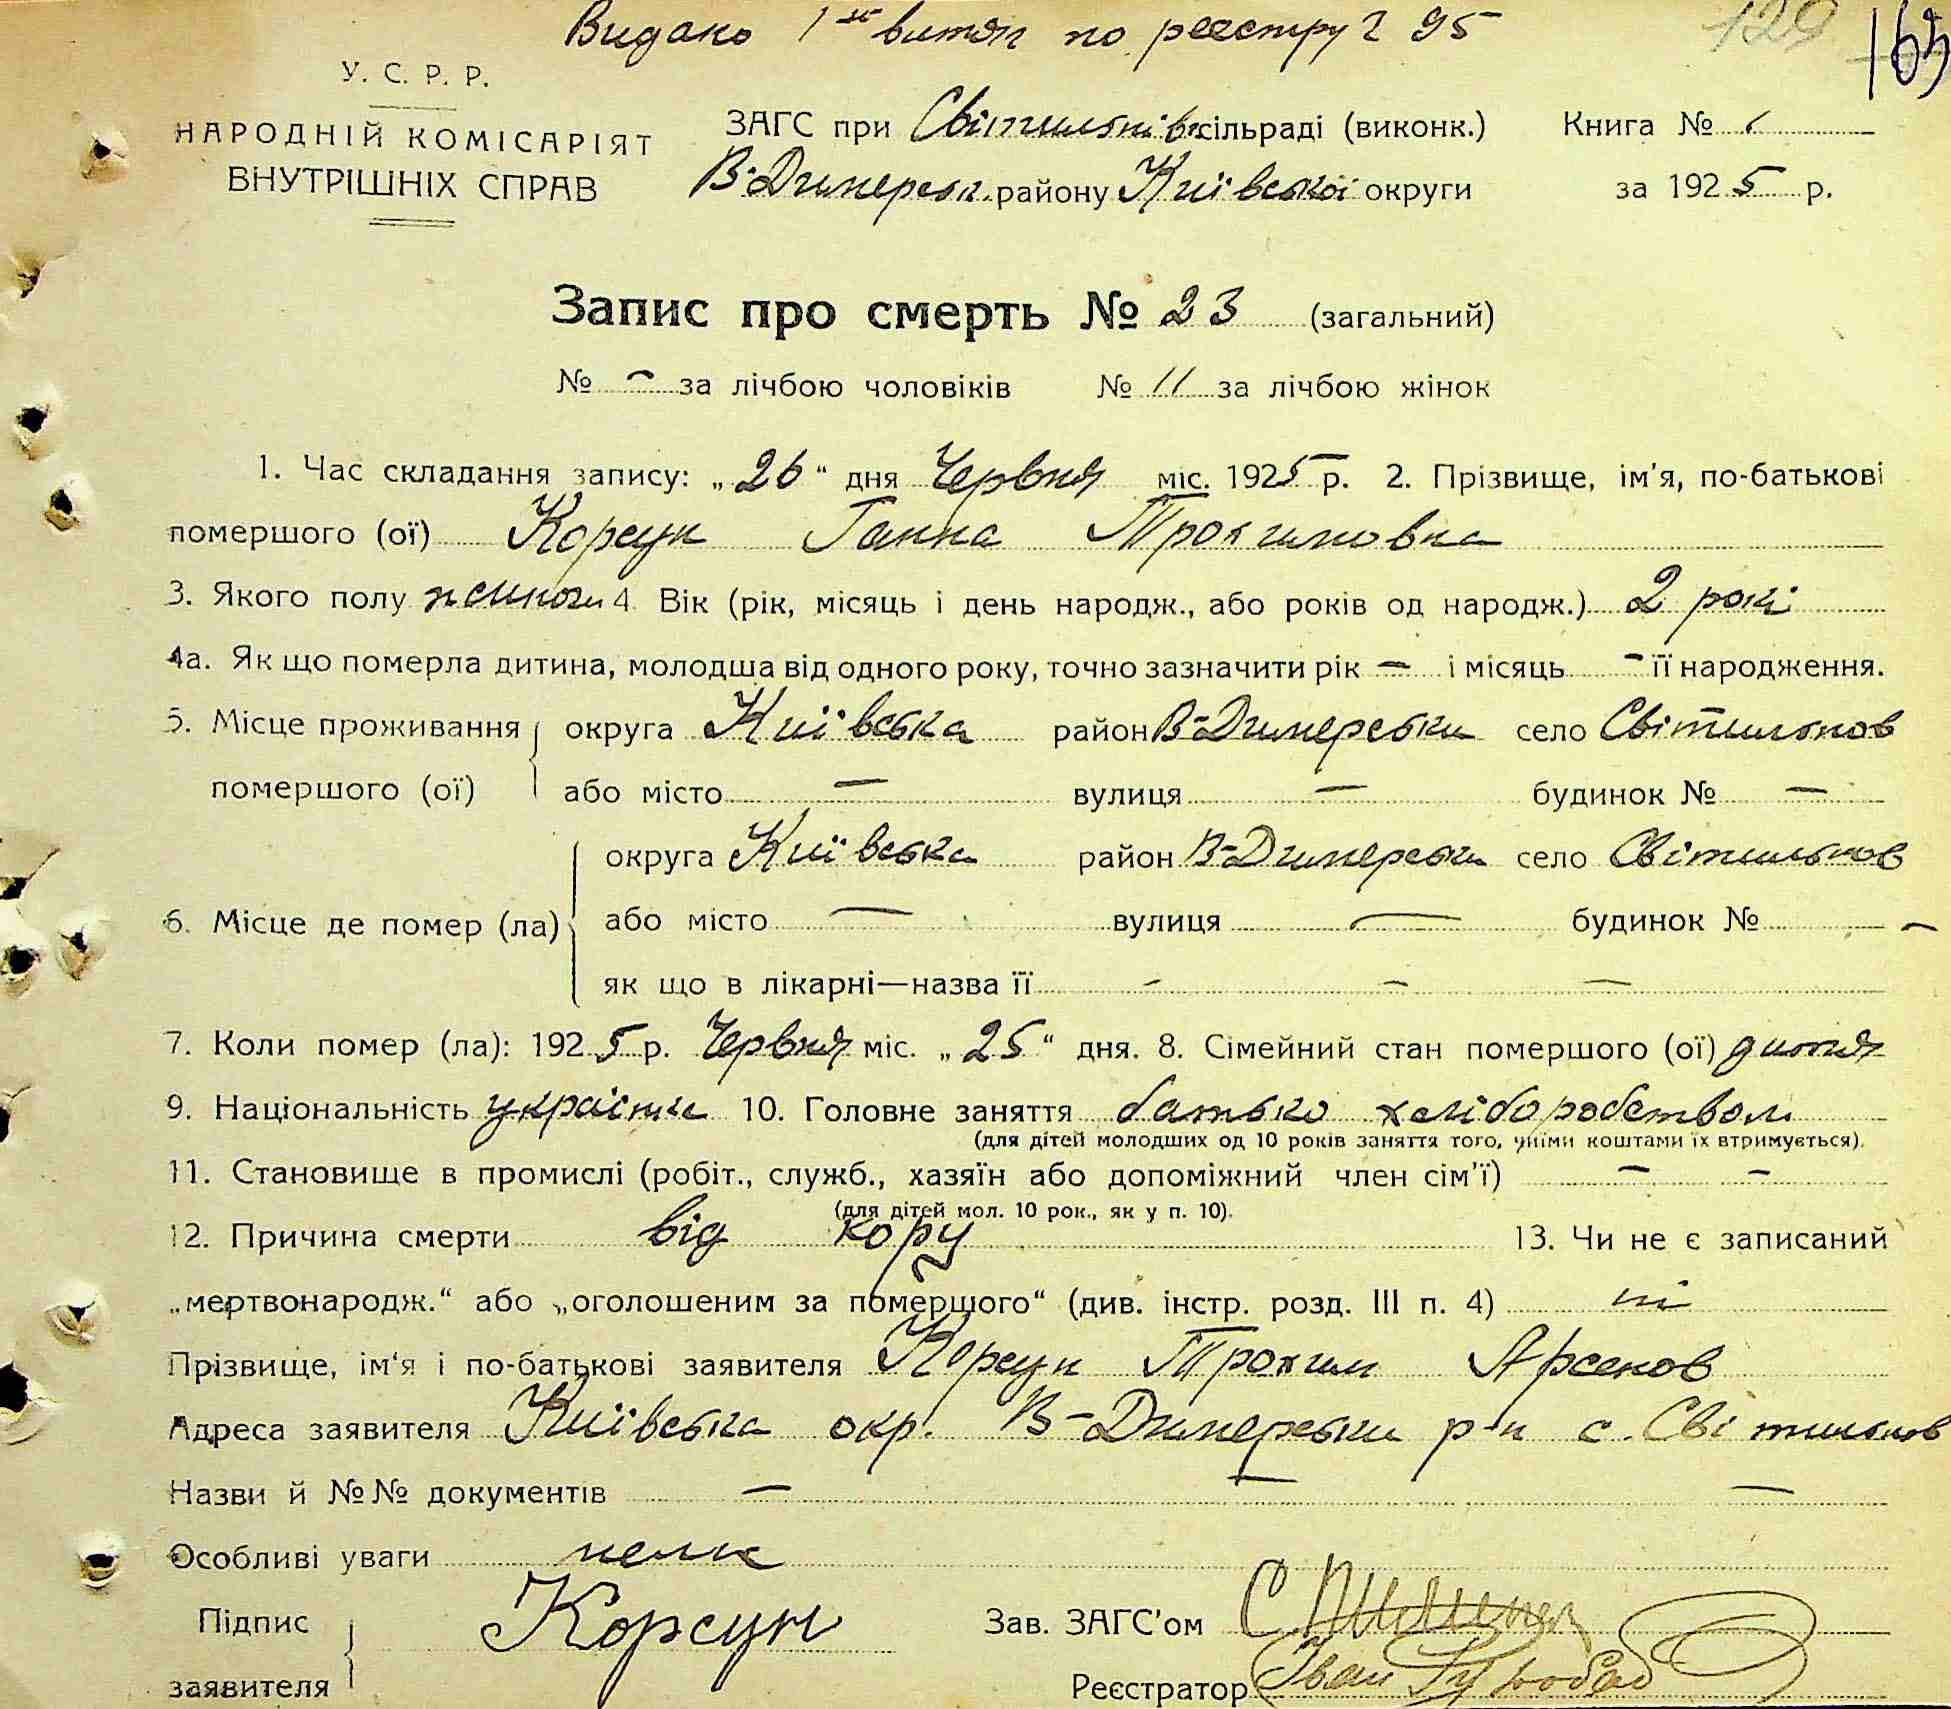 Видано 1ий витяг по реєстру г 95
129 163
У. С. Р. Р.
НАРОДНІЙ КОМІСАРІЯТ
ВНУТРІШНІХ СПРАВ
ЗАГС при Світильнів. сільраді (виконк.) Книга №
В-Димерськ. району Київської округи за 1925 р.
Запис про смерть № 23 (загальний)
№ - за лічбою чоловіків № 11 за лічбою жінок
1. Час складання запису: „26“ дня Червня міс. 1925 р. 2. Прізвище, ім'я, по-батькові
помершого (ої) Корсун Ганна Трохимовна
3. Якого полу 4. Вік (рік, місяць і день народж., або років од народж.) 2 рокі
4а. Як що померла дитина, молодша від одного року, точно зазначити рік — і місяць - її народження.
5. Місце проживання округа Київська район В-Димерськи село Світильнов
помершого (ої) або місто — вулиця — будинок № —
округа Київська район В-Димерськи село Світильнов
6. Місце де помер (ла) або місто — вулиця — будинок № —
як що в лікарні—назва її - - —
7. Коли помер (ла): 1925 р. Червня міс. „25“ дня. 8. Сімейний стан помершого (ої) дитя
9. Національність українка 10. Головне заняття батько хліборобством
(для дітей молодших од 10 років заняття того, чиїми коштами їх втримується).
11. Становище в промислі (робіт., служб., хазяїн або допоміжний член сім'ї) — —
(для дітей мол. 10 рок., як у п. 10).
12. Причина смерти від кору 13. Чи не є записаний
„мертвонародж.“ або „оголошеним за помершого“ (див. інстр. розд. III п. 4) ні
Прізвище, ім'я і по-батькові заявителя Корсун Трохим Арсенов
Адреса заявителя Київська окр. В-Димерськи р-н с. Світильнов
Назви й №№ документів — — —
Особливі уваги нема
Підпис Корсун Зав. ЗАГС'ом
заявителя Реєстратор Іван